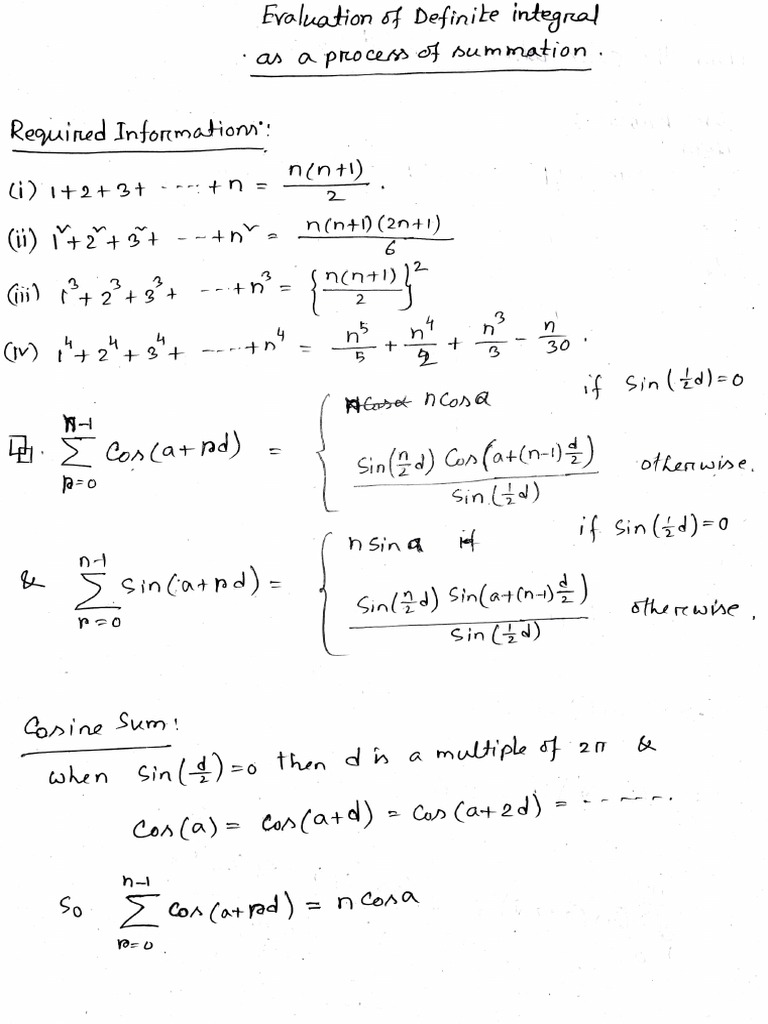 Evaluation of Definite integral
as a process of summation.
Required Informations:
(i) 1+2+3+ ----- +n = n(n+1)/2 .
(ii) 1²+2²+3²+ ----+n² = n(n+1)(2n+1)/6
(iii) 1³+2³+3³+ ----+n³ = {n(n+1)/2}²
(iv) 1⁴+2⁴+3⁴+ -----+n⁴ = n⁵/5 + n⁴/2 + n³/3 - n/30 .
∑_{r=0}^{n-1} Cos(a+rd) = { n cos a if Sin(½d)=0
Sin(n/2 d) Cos(a+(n-1)d/2) / Sin(½d) otherwise.
& ∑_{r=0}^{n-1} Sin(a+rd) = { n sin a if if Sin(½d)=0
Sin(n/2 d) Sin(a+(n-1)d/2) / Sin(½d) otherwise.
Cosine Sum:
when Sin(d/2)=0 then d is a multiple of 2π &
Cos(a) = Cos(a+d) = Cos(a+2d) = ------.
So ∑_{r=0}^{n-1} Cos(a+rd) = n Cosa